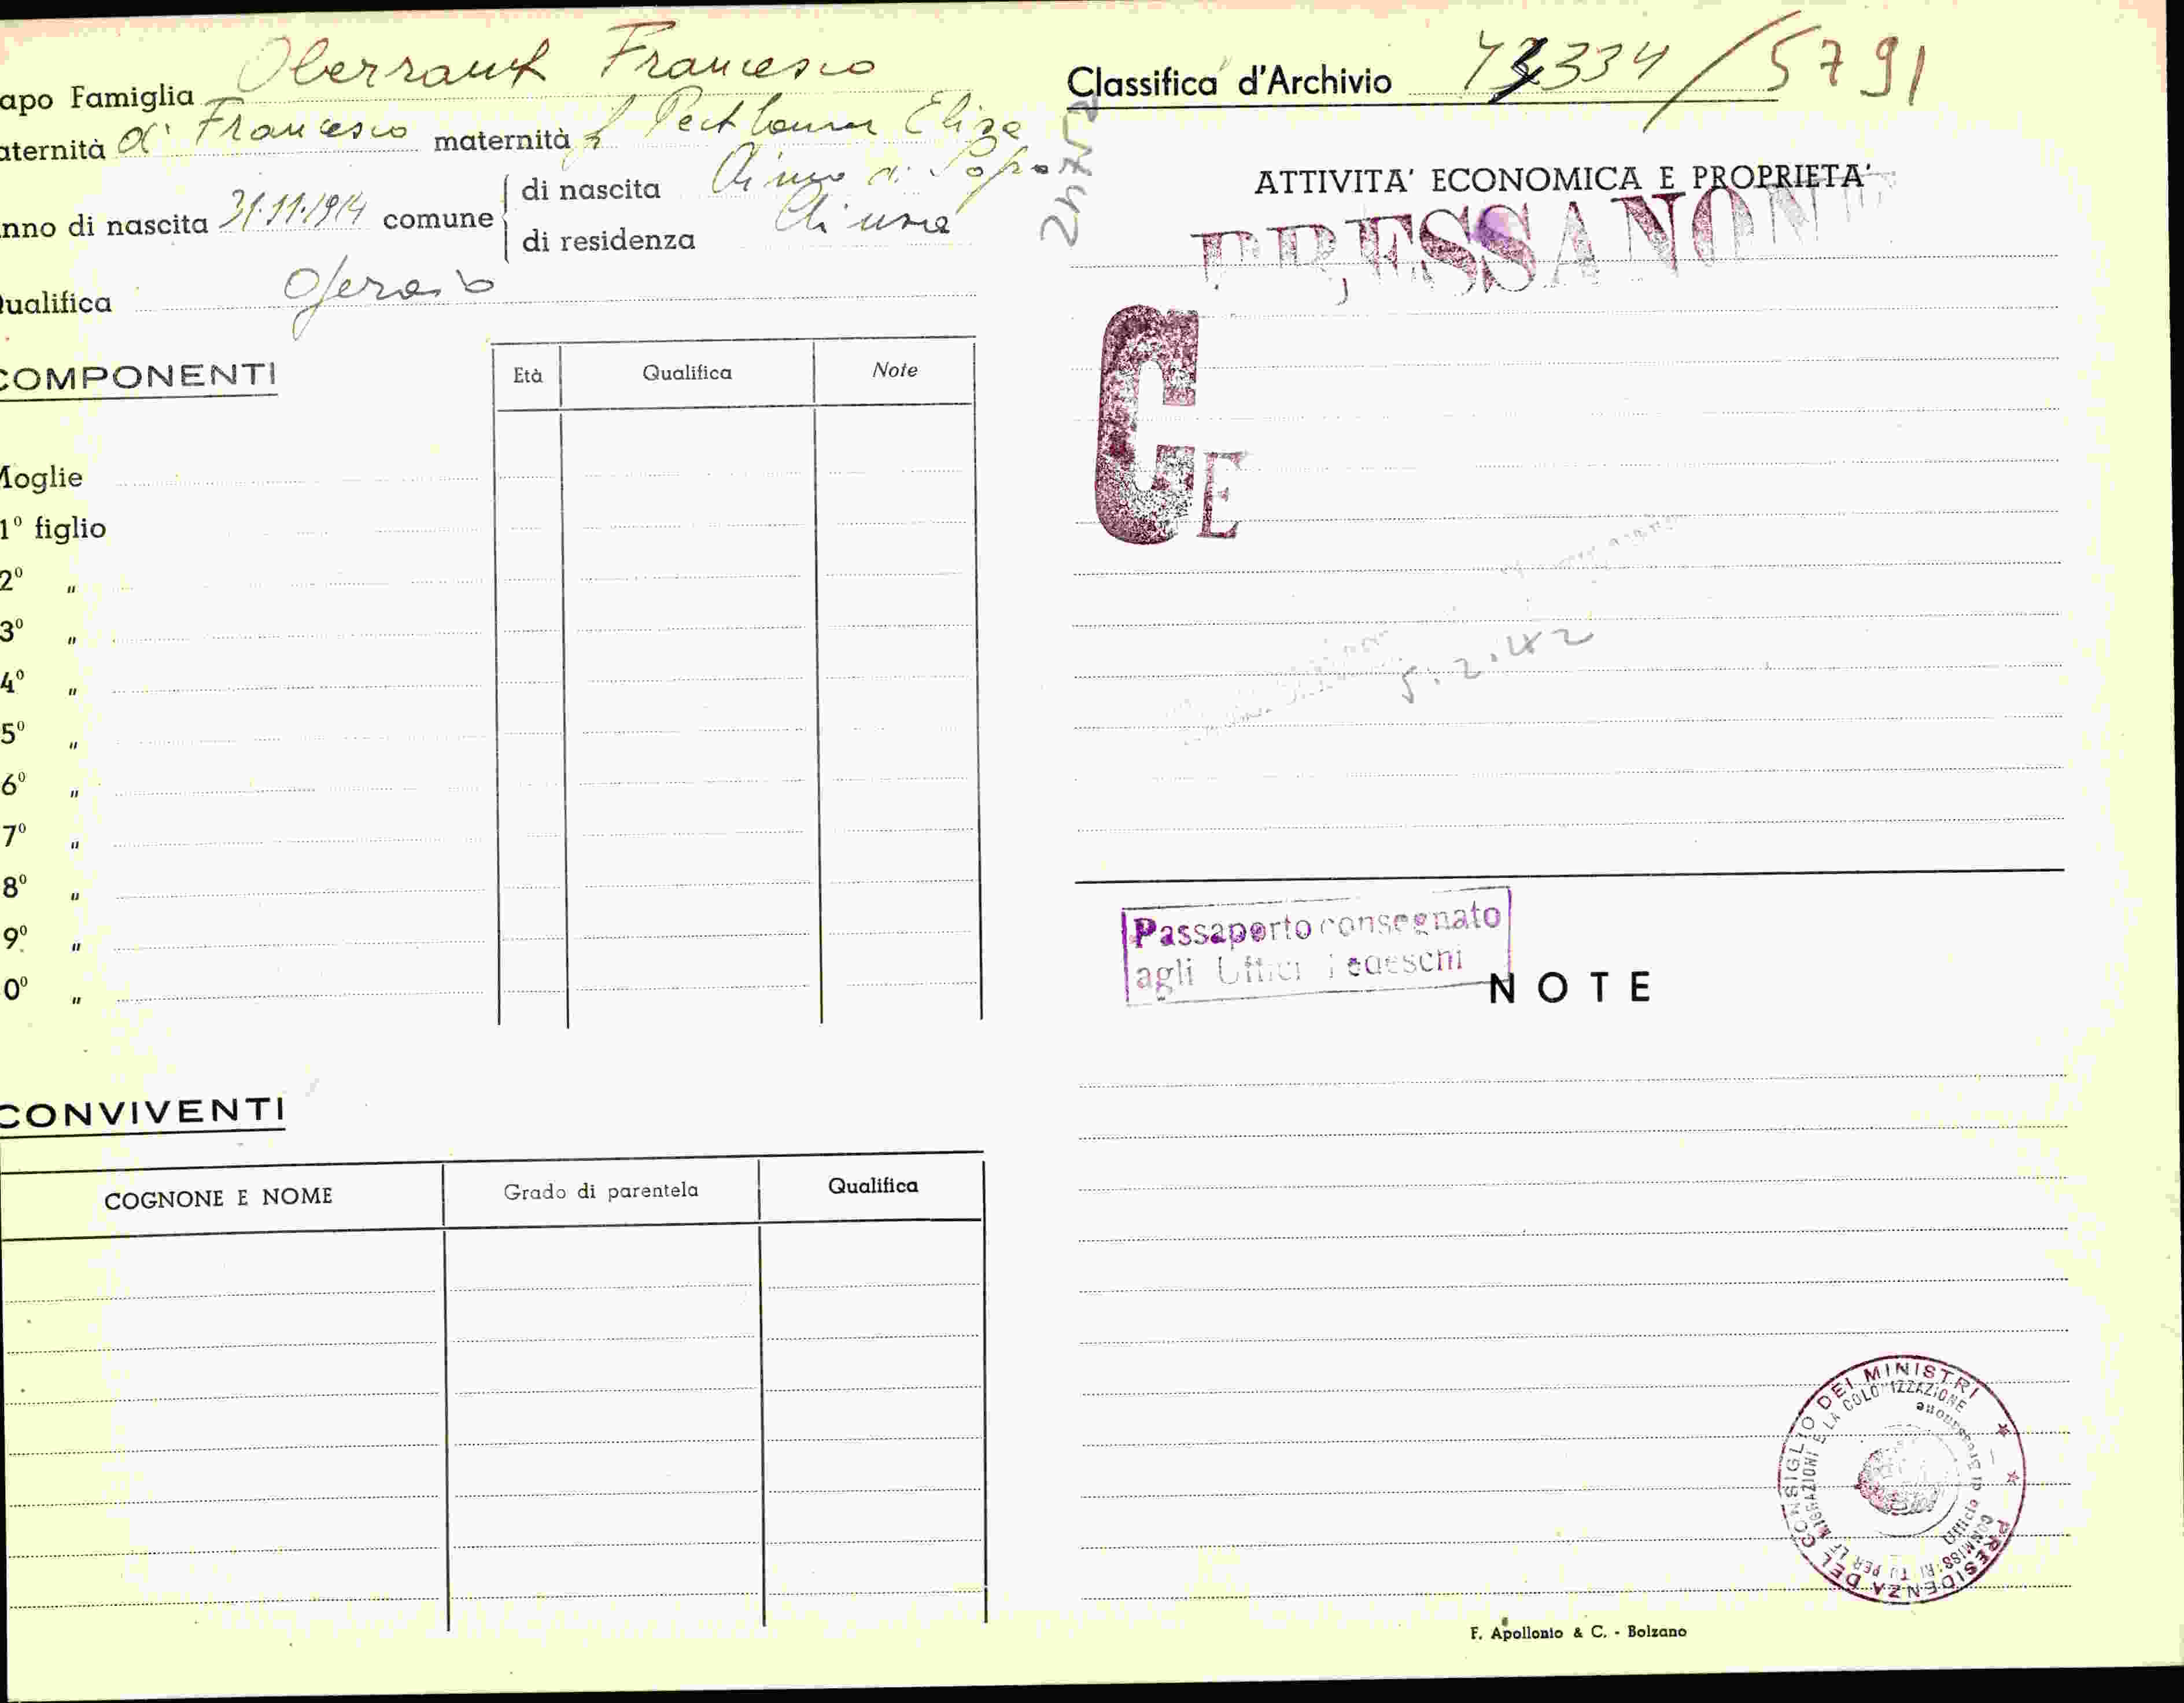 apo Famiglia Oberrauch Francesco
aternità di Francesco maternità f Elisa
nno di nascita 31.11.1914 comune di nascita
di residenza Chiusa
ualifica Operaio
COMPONENTI
Età Qualifica Note
Moglie
1º figlio
2º "
3º "
4º "
5º "
6º "
7º "
8º "
9º "
0º "
CONVIVENTI
COGNONE E NOME Grado di parentela Qualifica
Classifica d'Archivio 334/5791
ATTIVITA' ECONOMICA E PROPRIETA'
BRESSANONE
C E
5.2.42
Passaporto consegnato
agli Uffici Tedeschi
NOTE
PRESIDENZA DEL CONSIGLIO DEI MINISTRI
Ufficio di Bressanone
F. Apollonio & C. - Bolzano